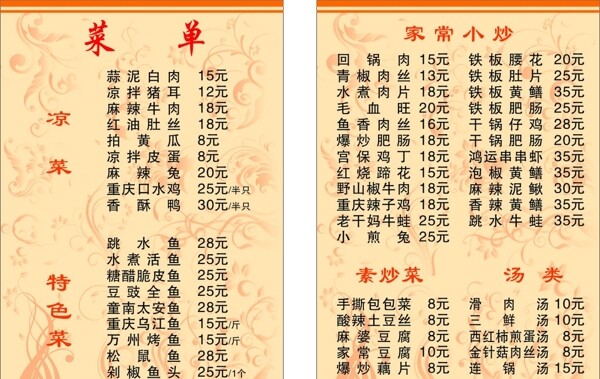 菜 单
凉菜
蒜泥白肉 15元
凉拌猪耳 12元
麻辣牛肉 18元
红油肚丝 18元
拍黄瓜 8元
凉拌皮蛋 8元
麻辣兔 20元
重庆口水鸡 25元/半只
香酥鸭 30元/半只
特色菜
跳水鱼 28元
水煮活鱼 25元
糖醋脆皮鱼 25元
豆豉全鱼 25元
童南太安鱼 28元
重庆乌江鱼 15元/斤
万州烤鱼 15元/斤
松鼠鱼 28元
剁椒鱼头 25元/1个
家常小炒
回锅肉 15元
青椒肉丝 13元
水煮肉片 18元
毛血旺 20元
鱼香肉丝 16元
爆炒肥肠 18元
宫保鸡丁 18元
红烧蹄花 15元
野山椒牛肉 18元
重庆辣子鸡 18元
老干妈牛蛙 25元
小煎兔 25元
铁板腰花 20元
铁板肚片 25元
铁板黄鳝 35元
铁板肥肠 25元
干锅仔鸡 28元
干锅肥肠 20元
鸿运串串虾 35元
泡椒黄鳝 35元
麻辣泥鳅 30元
香辣黄鳝 35元
跳水牛蛙 35元
素炒菜
手撕包包菜 8元
酸辣土豆丝 8元
麻婆豆腐 8元
家常豆腐 10元
爆炒藕片 8元
汤类
滑肉汤 10元
三鲜汤 10元
西红柿煎蛋汤 8元
金针菇肉丝汤 8元
连锅汤 15元